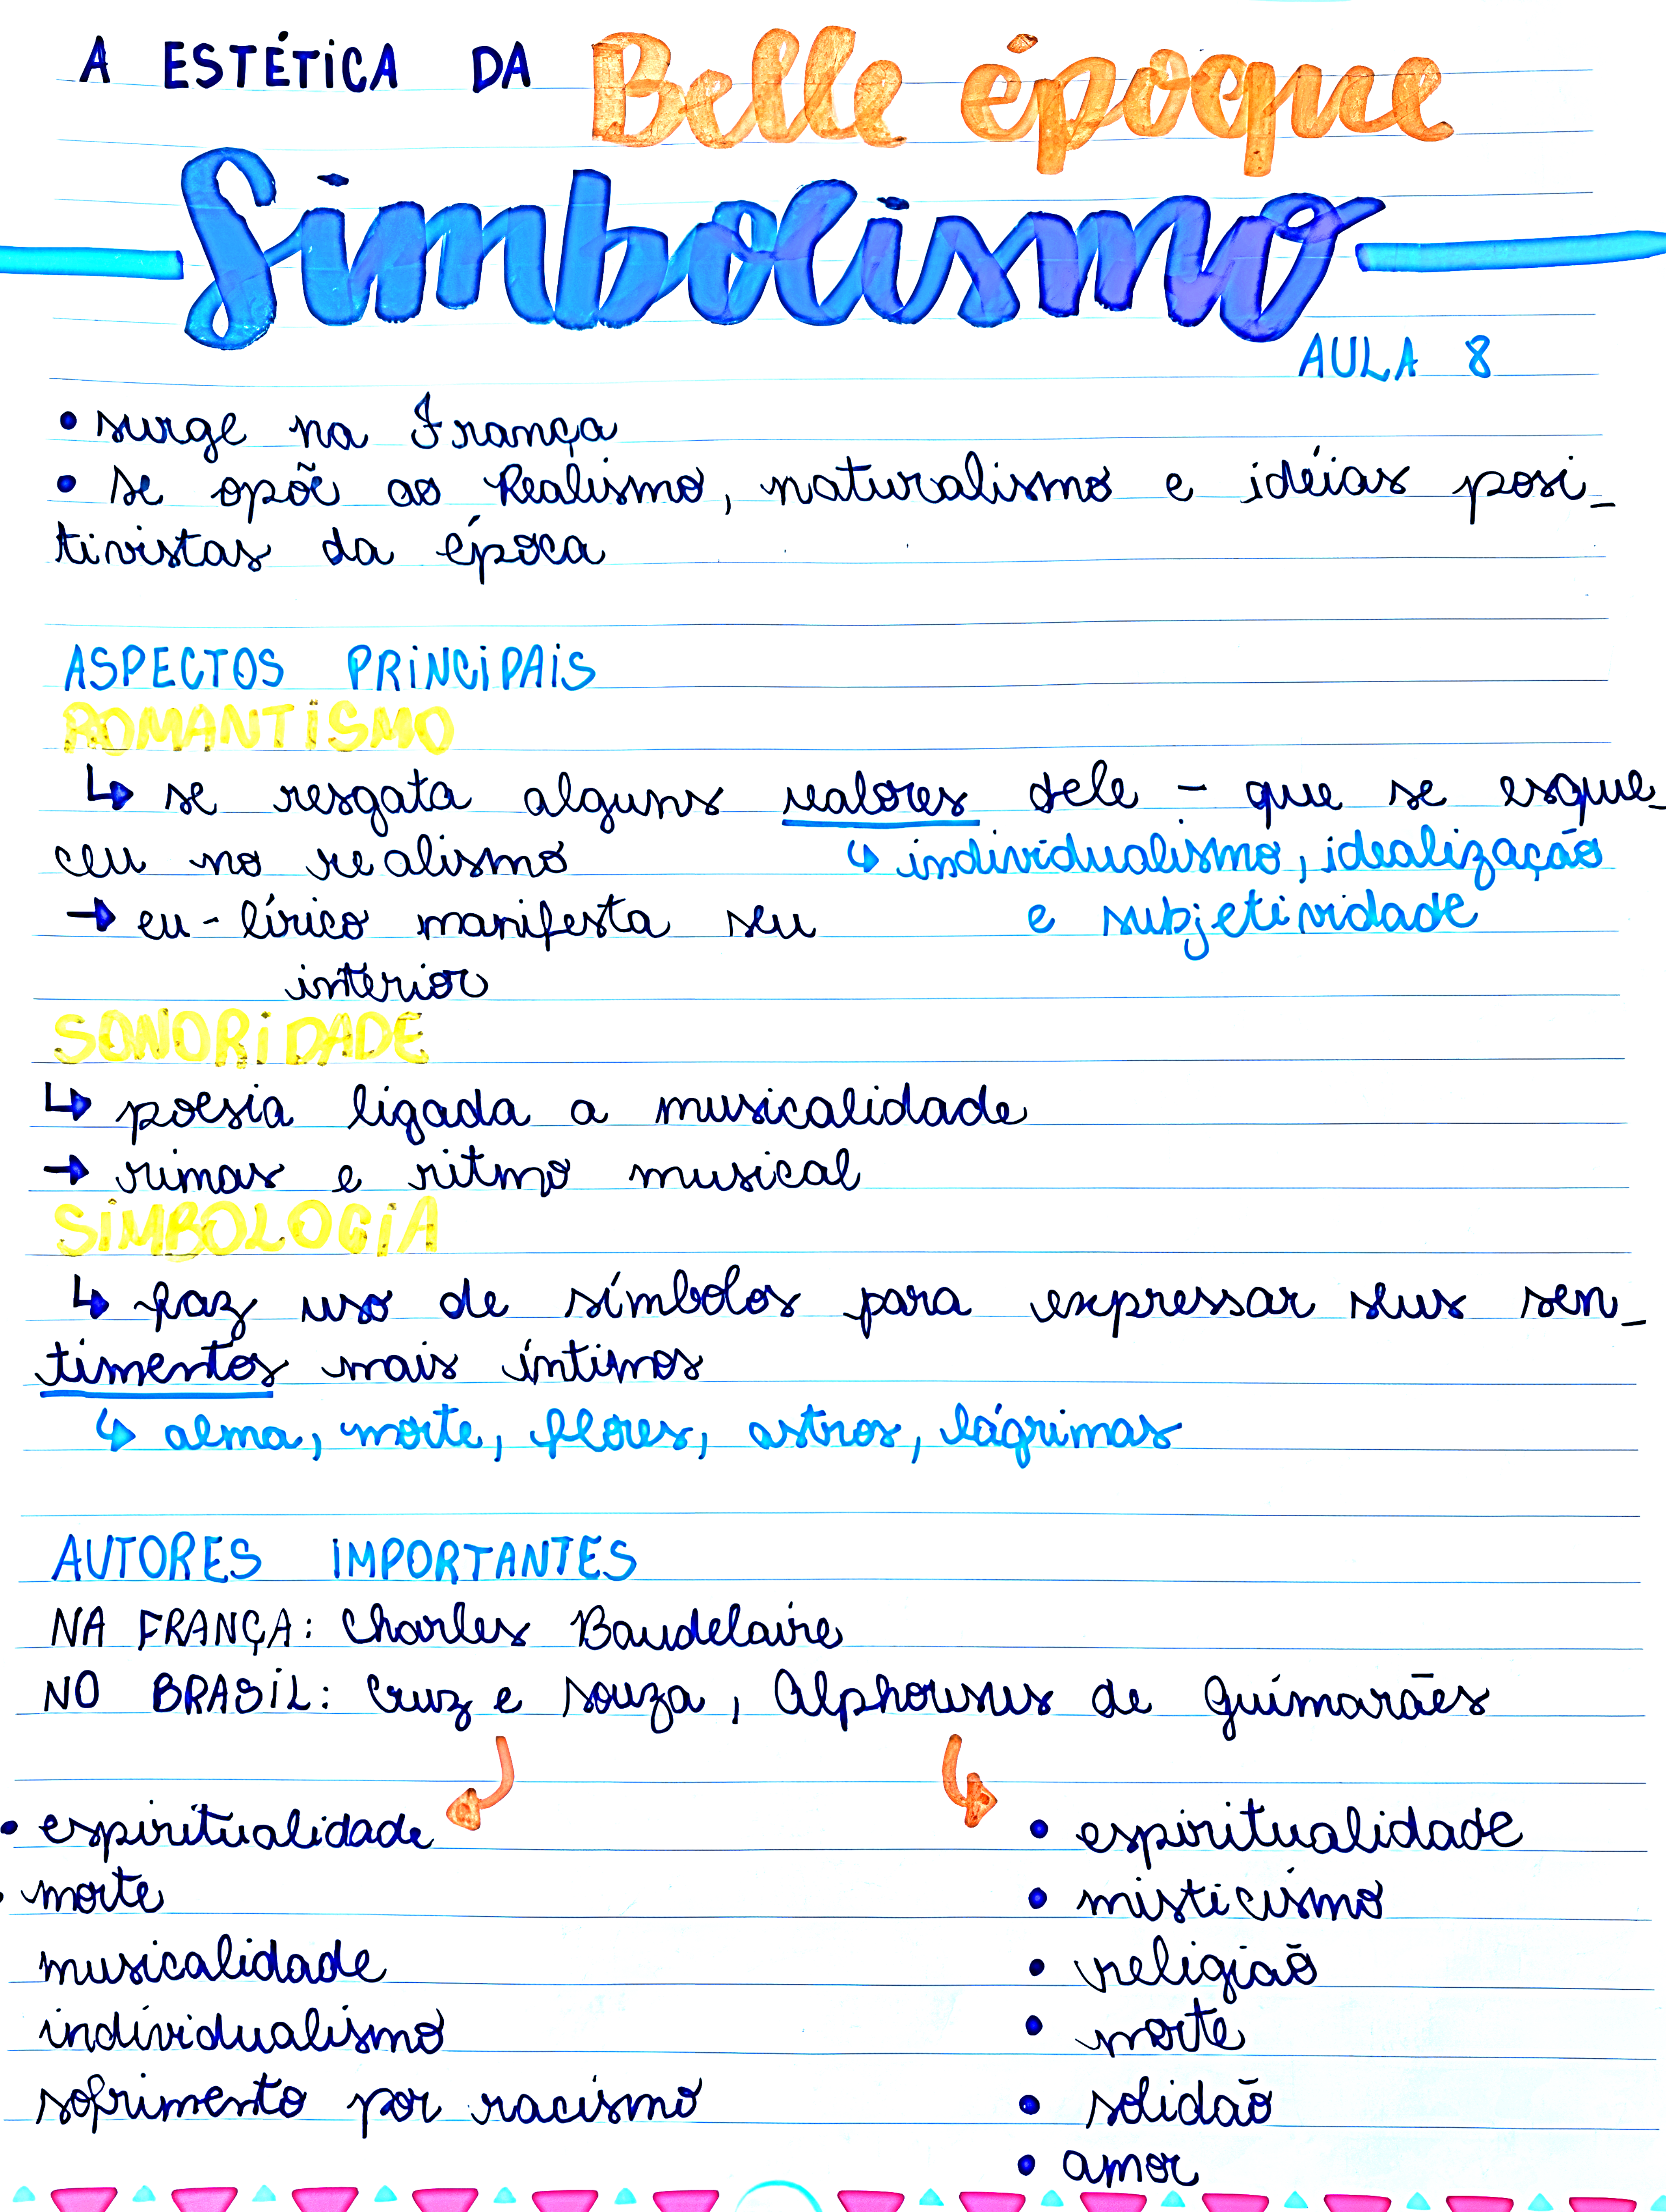 A ESTÉTICA DA Belle époque
Simbolismo
AULA 8
• surge na França
• se opõe ao Realismo, naturalismo e idéias posi-
tivistas da época
ASPECTOS PRINCIPAIS
ROMANTISMO
↳ se resgata alguns valores dele - que se esque-
ceu no realismo
↳ individualismo, idealização
→ eu-lírico manifesta seu
e subjetividade
interior
SONORIDADE
↳ poesia ligada a musicalidade
→ rimas e ritmo musical
SIMBOLOGIA
↳ faz uso de símbolos para expressar seus sen-
timentos mais íntimos
↳ alma, morte, flores, astros, lágrimas
AUTORES IMPORTANTES
NA FRANÇA: Charles Baudelaire
NO BRASIL: Cruz e Souza, Alphonsus de Guimarães
• espiritualidade
• morte
musicalidade
individualismo
sofrimento por racismo
• espiritualidade
• misticismo
• religião
• morte
• solidão
• amor